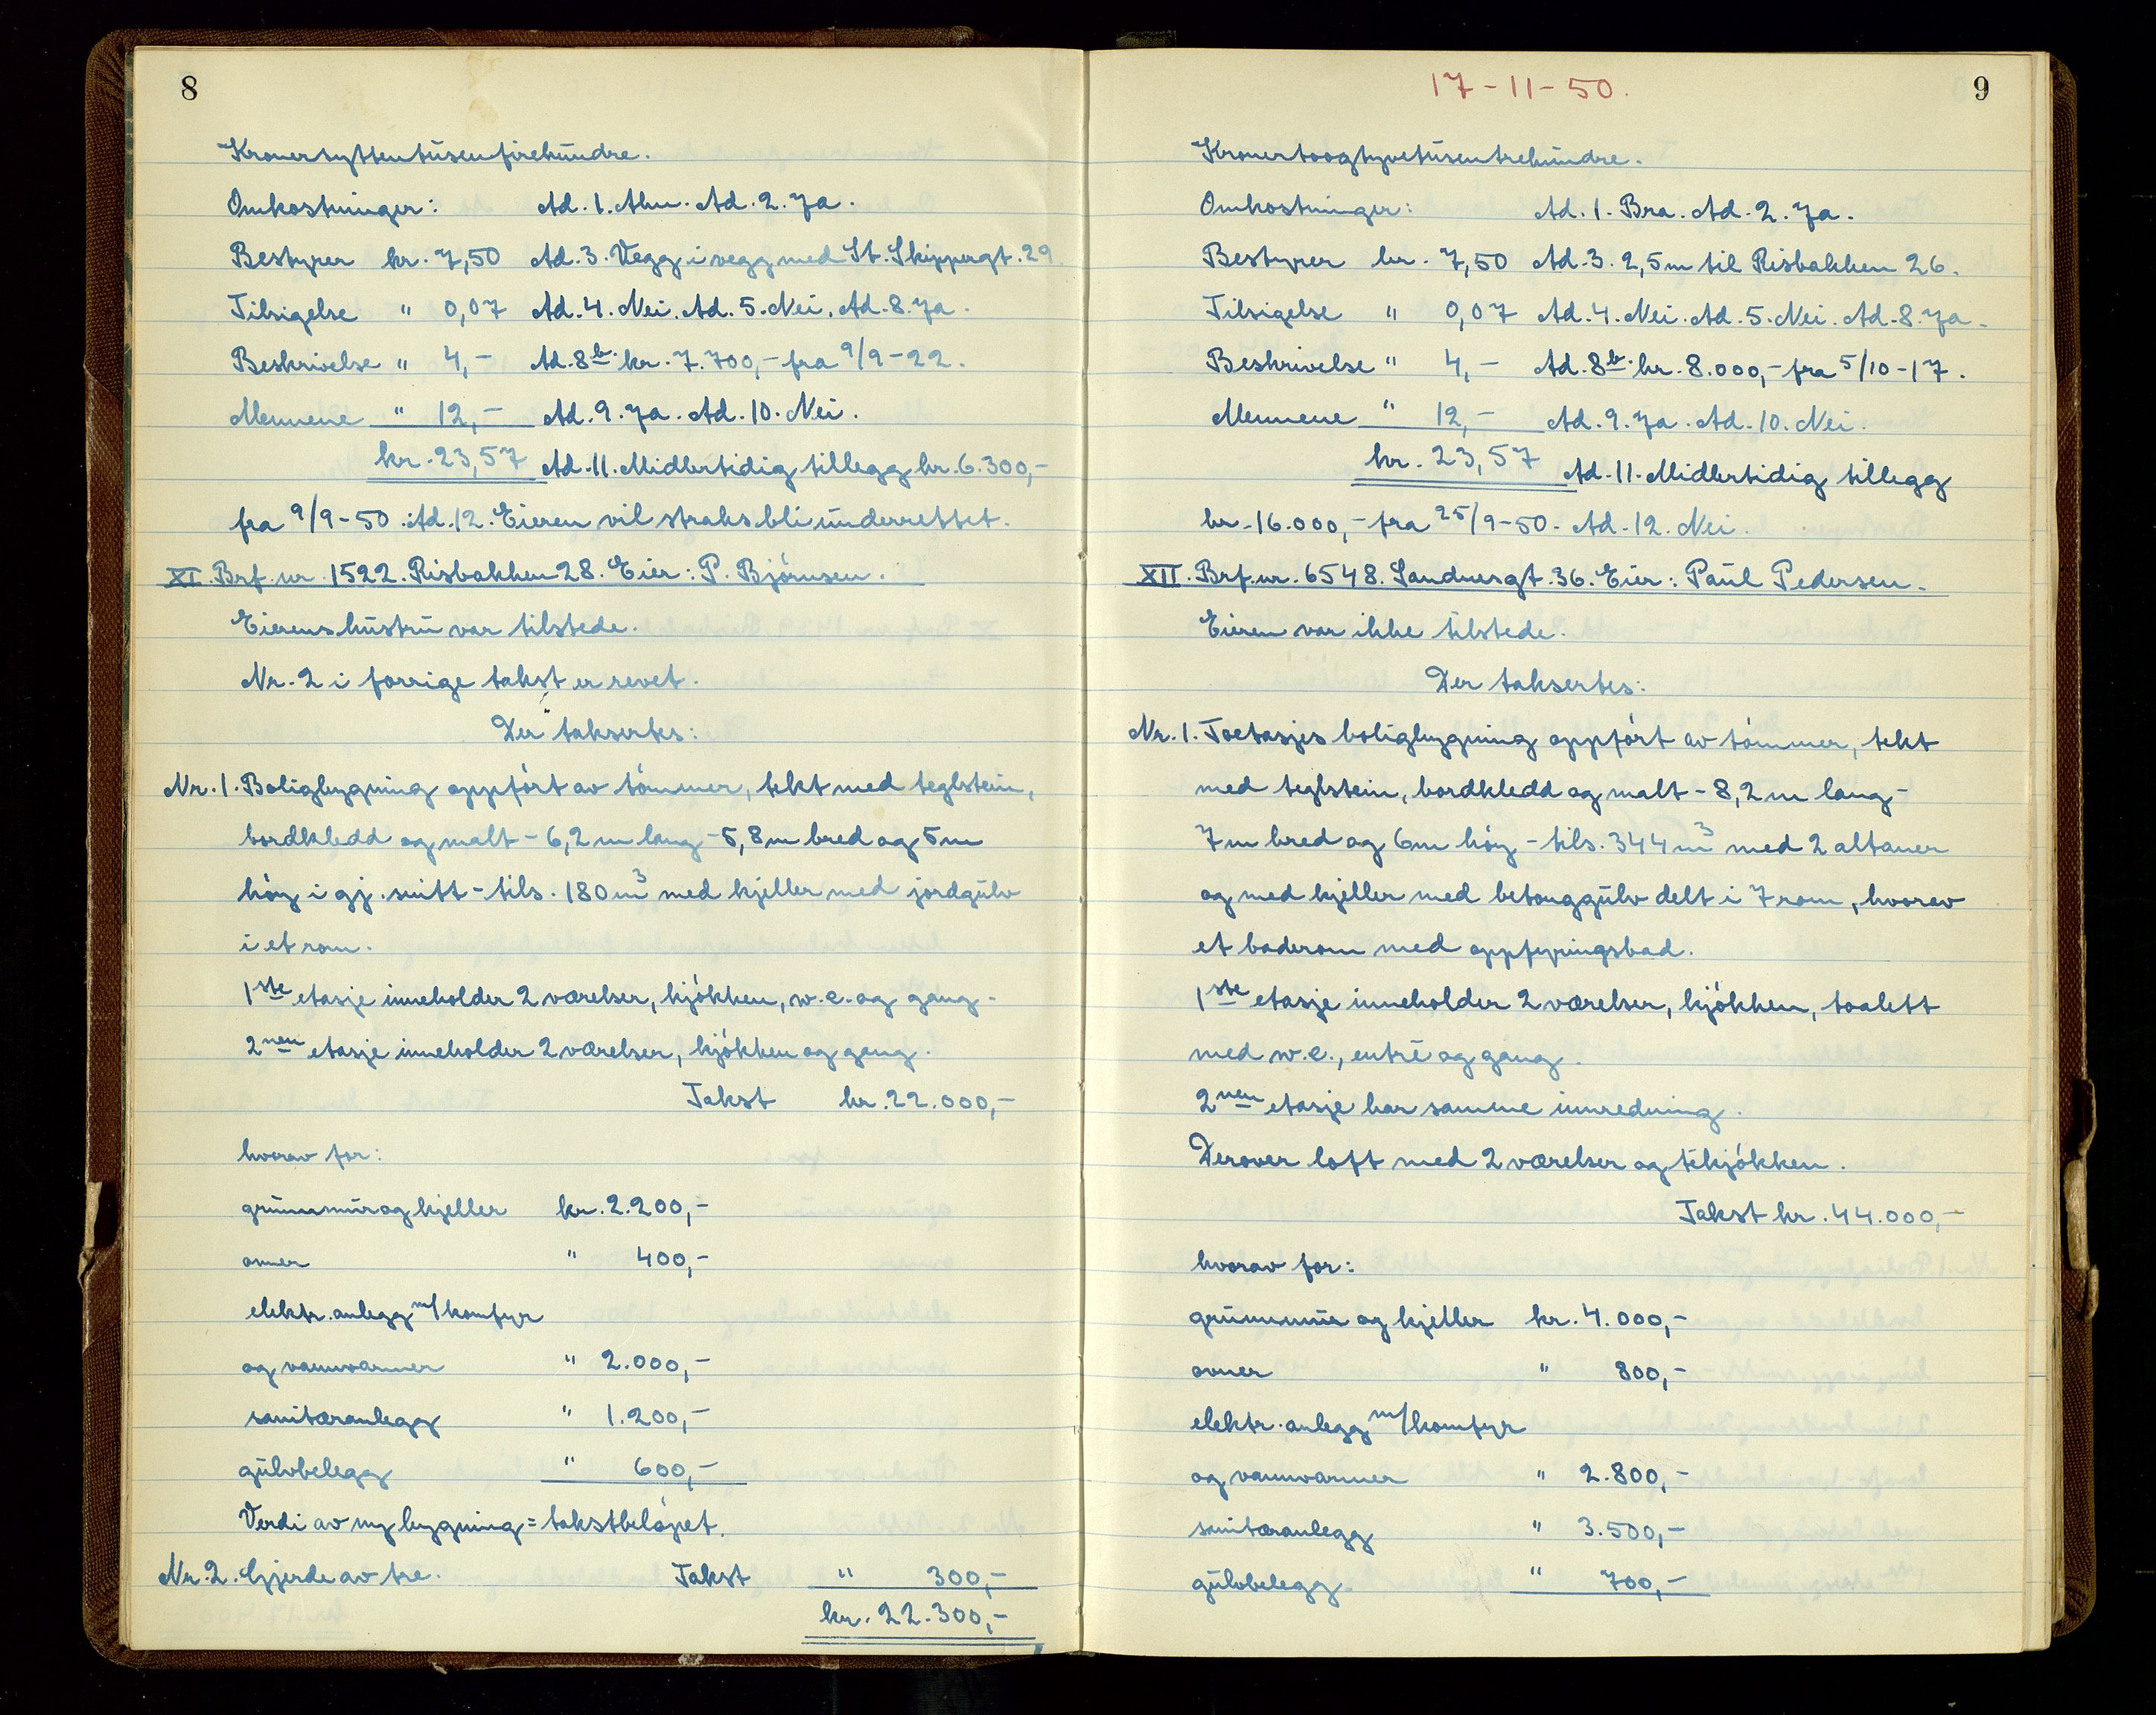 8
Kronersyttentusenfirehundre.
Omkostninger: Ad. 1. Alm. Ad. 2. Ja.
Bestyrer kr. 7,50 Ad. 3. Vegg i vegg med St. Skippergt. 29.
Tilsigelse " 0,07 Ad. 4. Nei. Ad. 5. Nei. Ad. 8. Ja.
Beskrivelse " 4,- Ad. 8b. kr. 7.700,- fra 9/9-22.
Mennene " 12,- Ad. 9. Ja. Ad. 10. Nei.
kr. 23,57 Ad. 11. Midlertidig tillegg kr. 6.300,-
fra 9/9-50. Ad. 12. Eieren vil straks bli underrettet.
XI. Brf. nr. 1522. Risbakken 28. Eier: P. Björnsen.
Eierens hustru var tilstede.
Nr. 2 i forrige takst er revet.
Der taksertes:
Nr. 1. Boligbygning oppfört av tömmer, tekt med teglstein,
bordkledd og malt - 6,2 m lang - 5,8 m bred og 5 m
höy i gj. snitt - tils. 180 m3 med kjeller med jordgulv
i et rom.
1ste etasje inneholder 2 værelser, kjökken, w.c. og gang.
2nen etasje inneholder 2 værelser, kjökken og gang.
Takst kr. 22.000,-
hvorav for:
grunnmur og kjeller kr. 2.200,-
ovner " 400,-
elektr. anlegg m/komfyr
og vannvarmer " 2.000,-
sanitæranlegg " 1.200,-
gulvbelegg " 600,-
Verdi av ny bygning = takstbelöpet.
Nr. 2. Gjerde av tre. Takst " 300,-
kr. 22.300,-
17-11-50.
9
Kronertoogtyvetusentrehundre.
Omkostninger: Ad. 1. Bra. Ad. 2. Ja.
Bestyrer kr. 7,50 Ad. 3. 2,5 m til Risbakken 26.
Tilsigelse " 0,07 Ad. 4. Nei. Ad. 5. Nei. Ad. 8. Ja.
Beskrivelse " 4,- Ad. 8b. kr. 8.000,- fra 5/10-17.
Mennene " 12,- Ad. 9. Ja. Ad. 10. Nei.
kr. 23,57 Ad. 11. Midlertidig tillegg
kr. 16.000,- fra 25/9-50. Ad. 12. Nei.
XII. Brf. nr. 6548. Sandnesgt. 36. Eier: Paul Pedersen.
Eieren var ikke tilstede.
Der taksertes:
Nr. 1. Toetasjes boligbygning oppfört av tömmer, tekt
med teglstein, bordkledd og malt - 8,2 m lang -
7 m bred og 6 m höy - tils. 344 m3 med 2 altaner
og med kjeller med betonggulv delt i 7 rom, hvorav
et baderom med oppfyringsbad.
1ste etasje inneholder 2 værelser, kjökken, toalett
med w.c., entré og gang.
2nen etasje har samme innredning.
Derover loft med 2 værelser og tekjökken.
Takst kr. 44.000,-
hvorav for:
grunnmur og kjeller kr. 4.000,-
ovner " 800,-
elektr. anlegg m/komfyr
og vannvarmer " 2.800,-
sanitæranlegg " 3.500,-
gulvbelegg. " 700,-